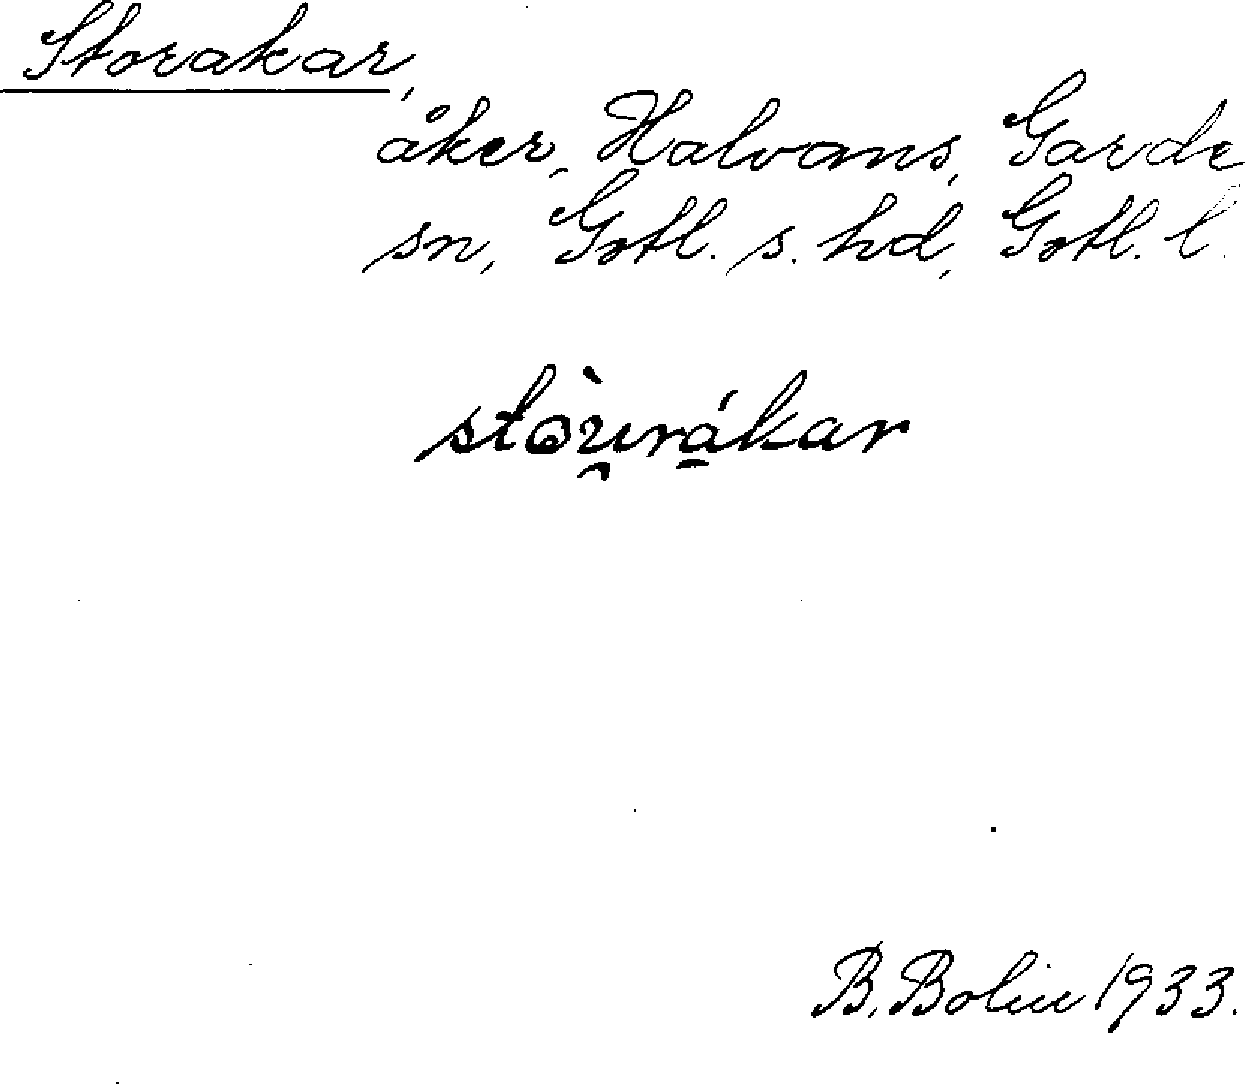 Storakar,
åker, Halvans, Garde
sn, Gotl. s. hd, Gotl. l.
B. Bolin 1933.